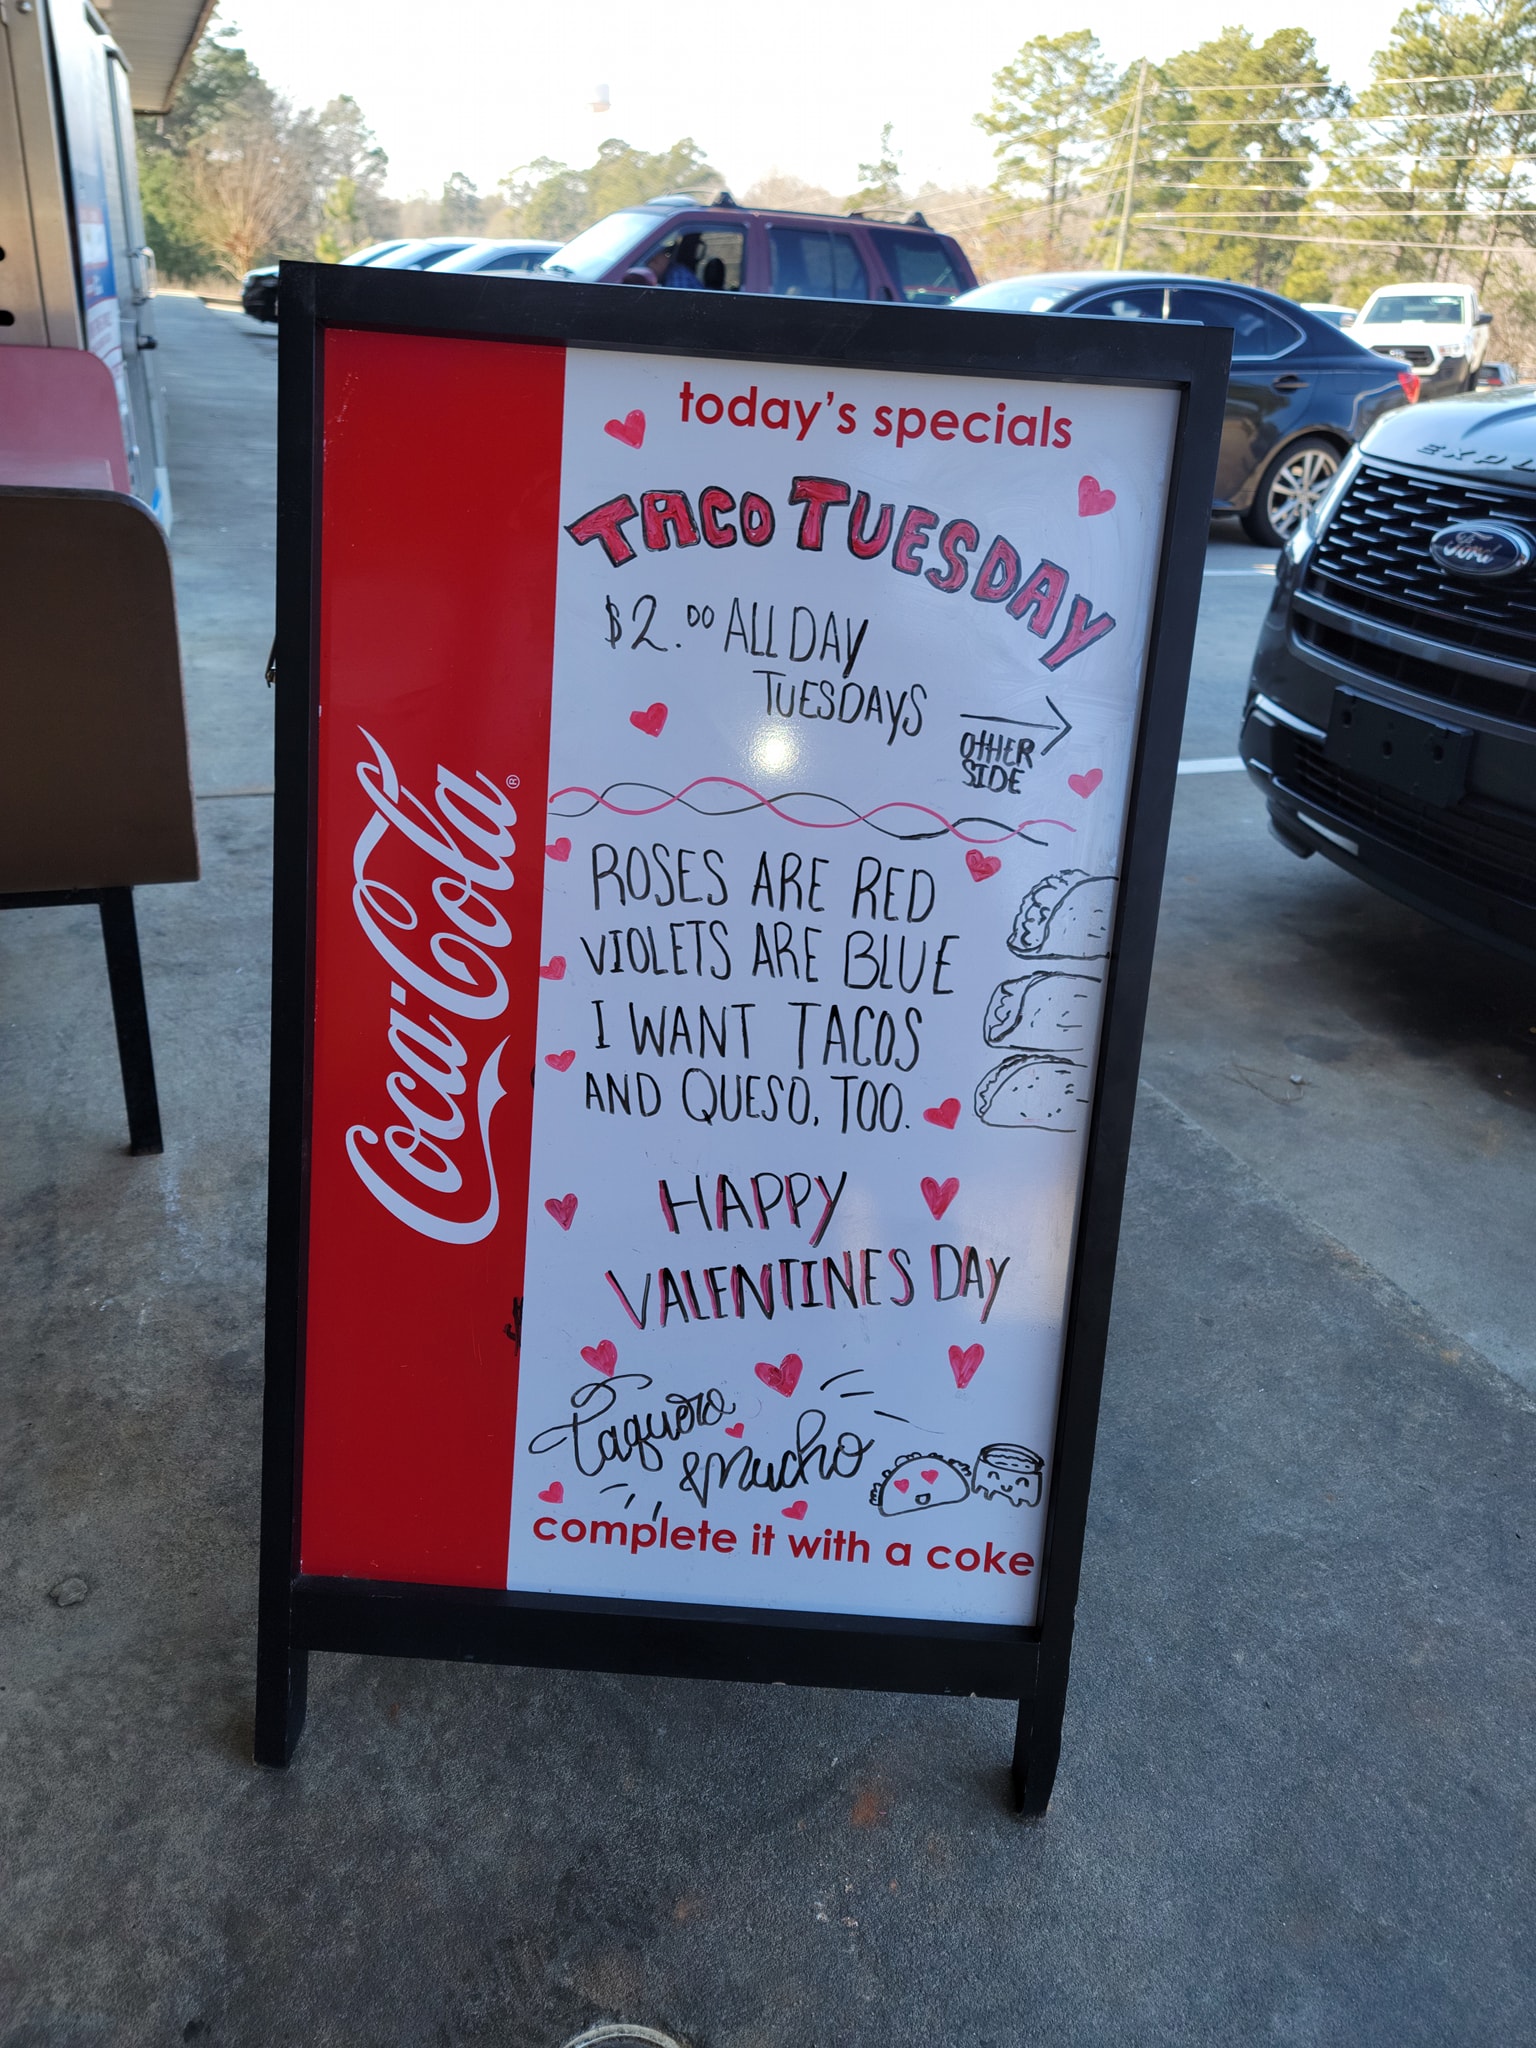 today's specials
TACO TUESDAY
$2.00 ALL DAY
TUESDAYS
OTHER
SIDE
ROSES ARE RED
VIOLETS ARE BLUE
I WANT TACOS
AND QUESO, TOO.
HAPPY
VALENTINES DAY
Taquero
& Mucho
complete it with a coke
Coca-Cola®
Ford